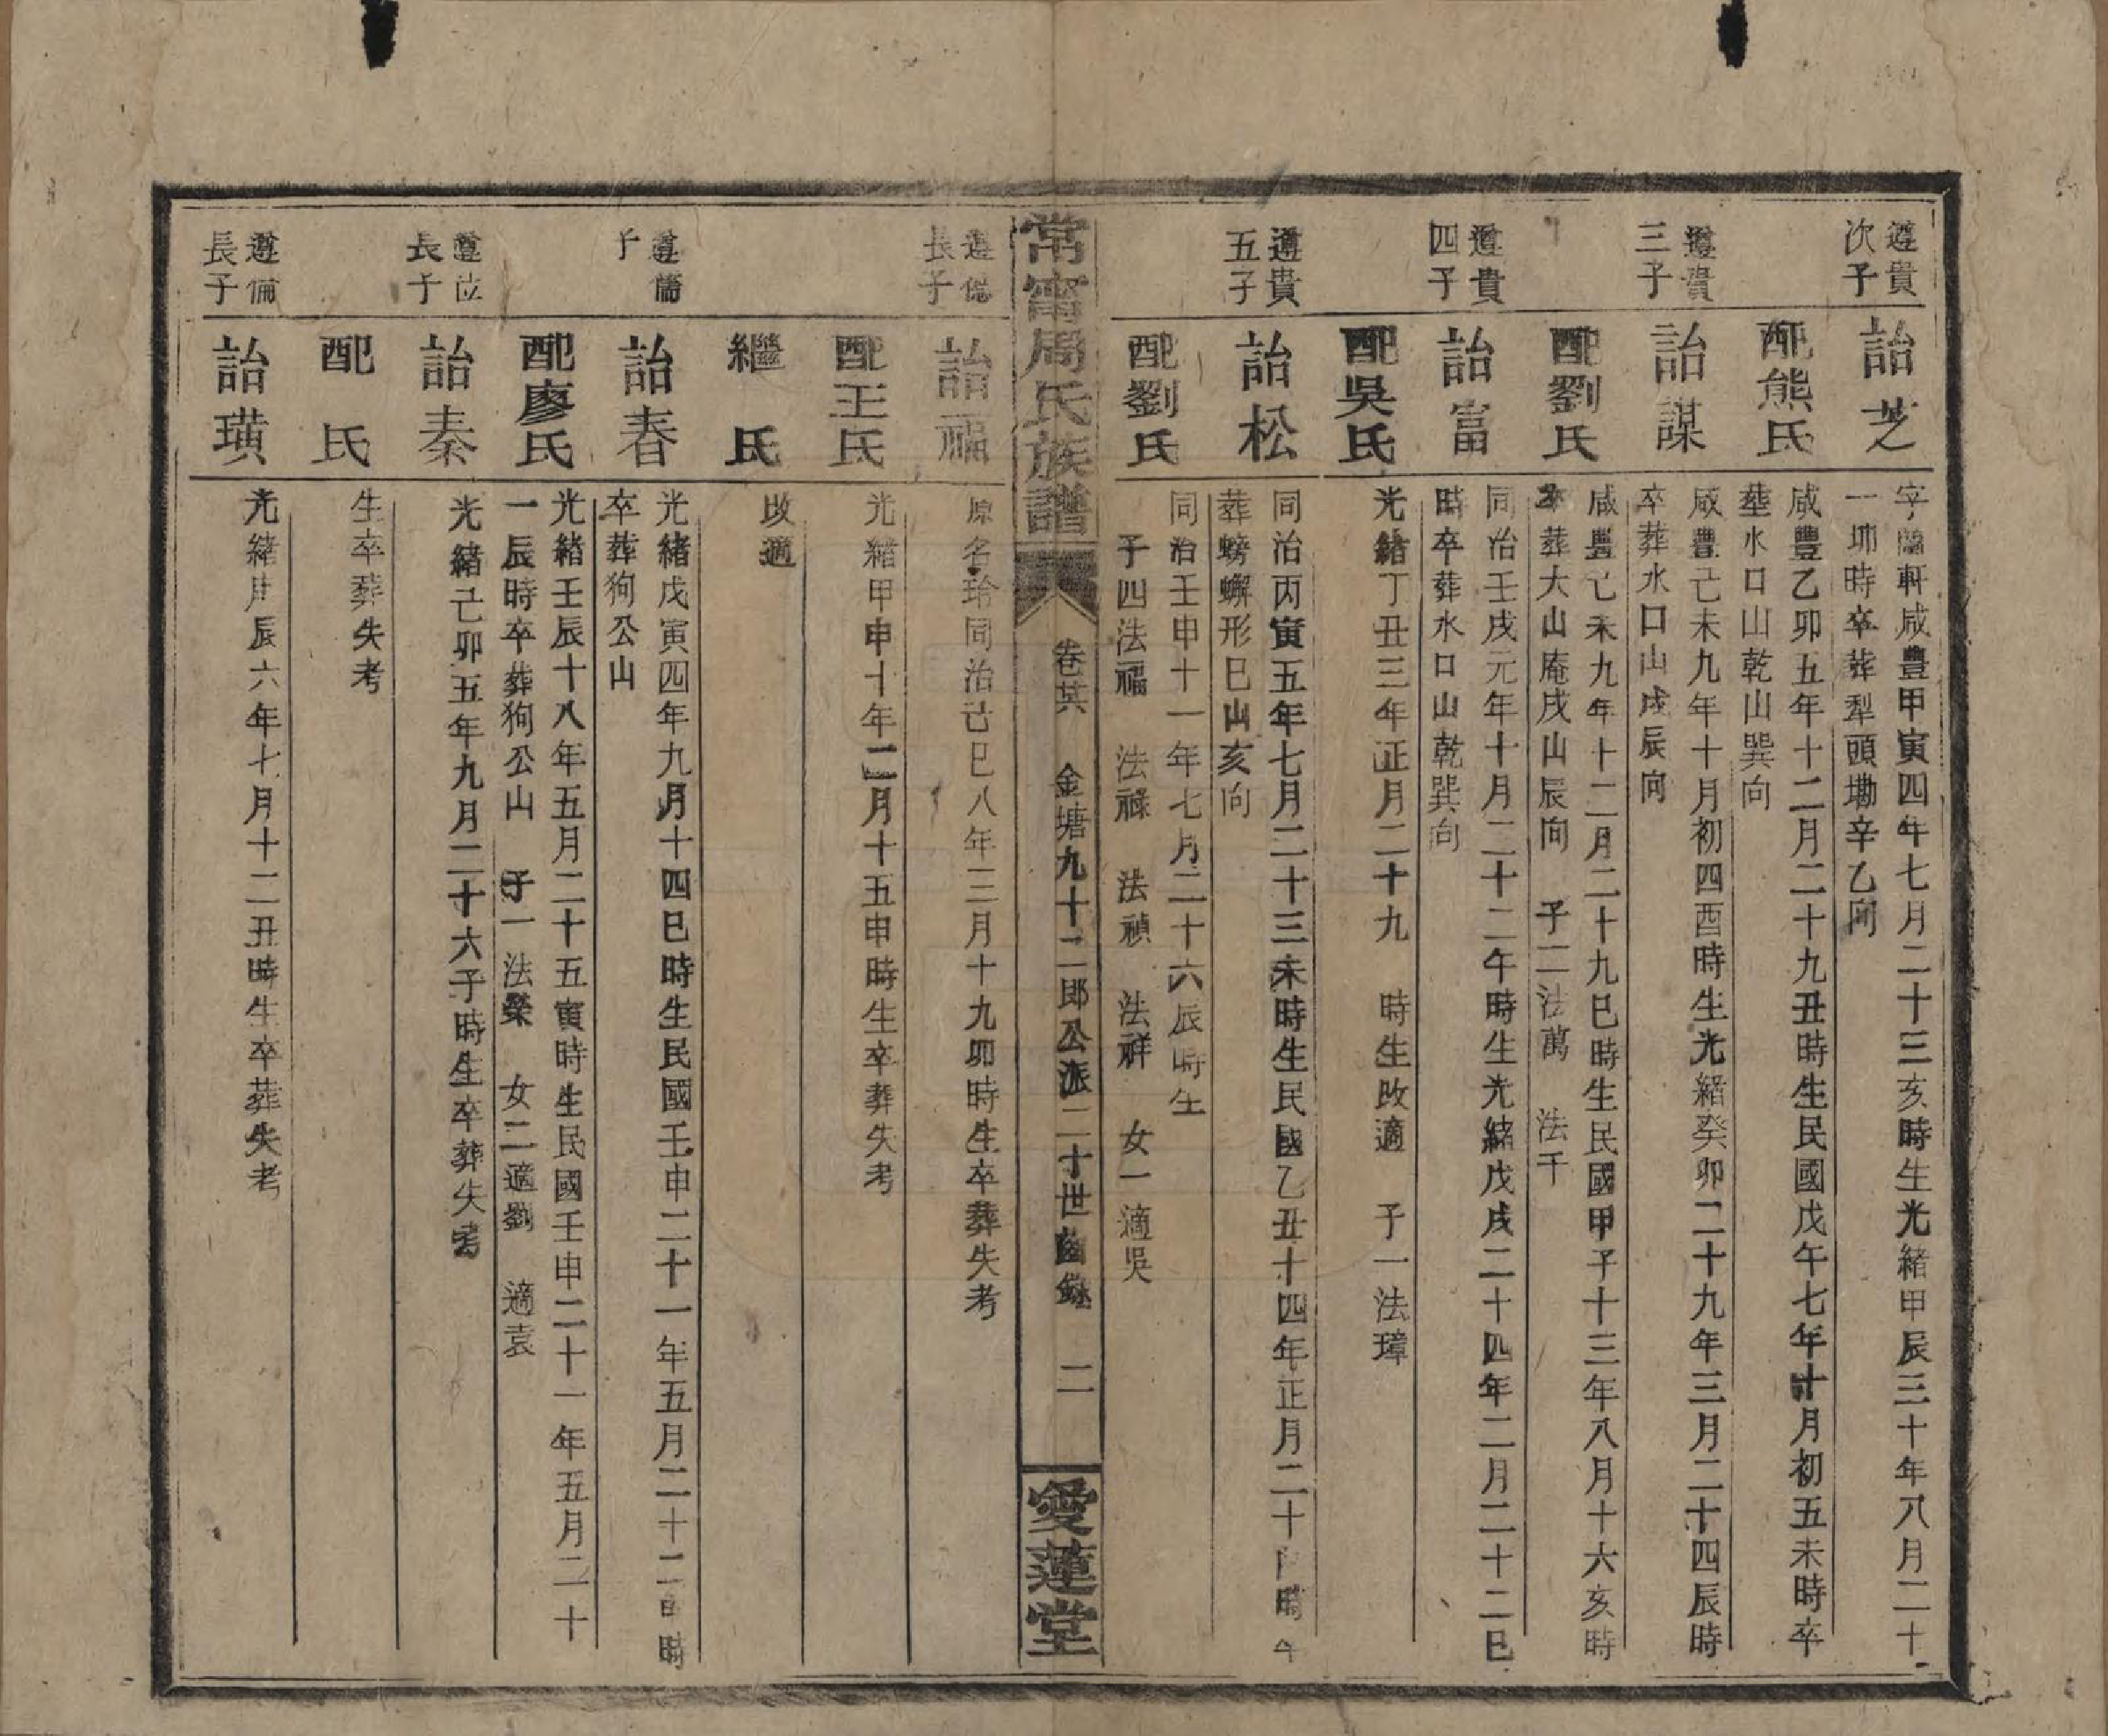 遵貴
次子
詒芝
字蘭軒咸豐甲寅四年七月二十三亥時生光緒甲辰三十年八月二十
一卯時卒葬犁頭塘辛乙向
配熊氏
咸豐乙卯五年十二月二十九丑時生民國戊午七年十月初五未時卒
塟水口山乾山巽向
遵貴
三子
詒謀
咸豐己未九年十月初四酉時生光緒癸卯二十九年三月二十四辰時
卒葬水口山戌辰向
配劉氏
咸豐己未九年十二月二十九巳時生民國甲子十三年八月十六亥時
卒葬大山庵戌山辰向 子二法萬 法千
遵貴
四子
詒富
同治壬戌元年十月二十二午時生光緒戊戌二十四年二月二十二巳
時卒葬水口山乾巽向
配吳氏
光緒丁丑三年正月二十九 時生改適 子一法璋
遵貴
五子
詒松
同治丙寅五年七月二十三未時生民國乙丑十四年正月二十 時
葬螃蠏形巳山亥向
配劉氏
同治壬申十一年七月二十六辰時生
子四法福 法祿 法禎 法祥 女一適吳
常甯周氏族譜
卷廿六 金塘九十二郎公派二十世齒錄 二
愛蓮堂
遵
長子
詒福
原名珆同治己巳八年三月十九卯時生卒葬失考
配王氏
光緒甲申十年二月十五申時生卒葬失考
繼 氏
改適
遵
子
詒春
光緒戊寅四年九月十四巳時生民國壬申二十一年五月二十二 時
卒葬狗公山
配廖氏
光緒壬辰十八年五月二十五寅時生民國壬申二十一年五月二十
一辰時卒葬狗公山 子一法榮 女二適劉 適袁
遵位
長子
詒秦
光緒己卯五年九月二十六子時生卒葬失考
配 氏
生卒葬失考
遵倫
長子
詒璜
光緒庚辰六年七月十二丑時生卒葬失考